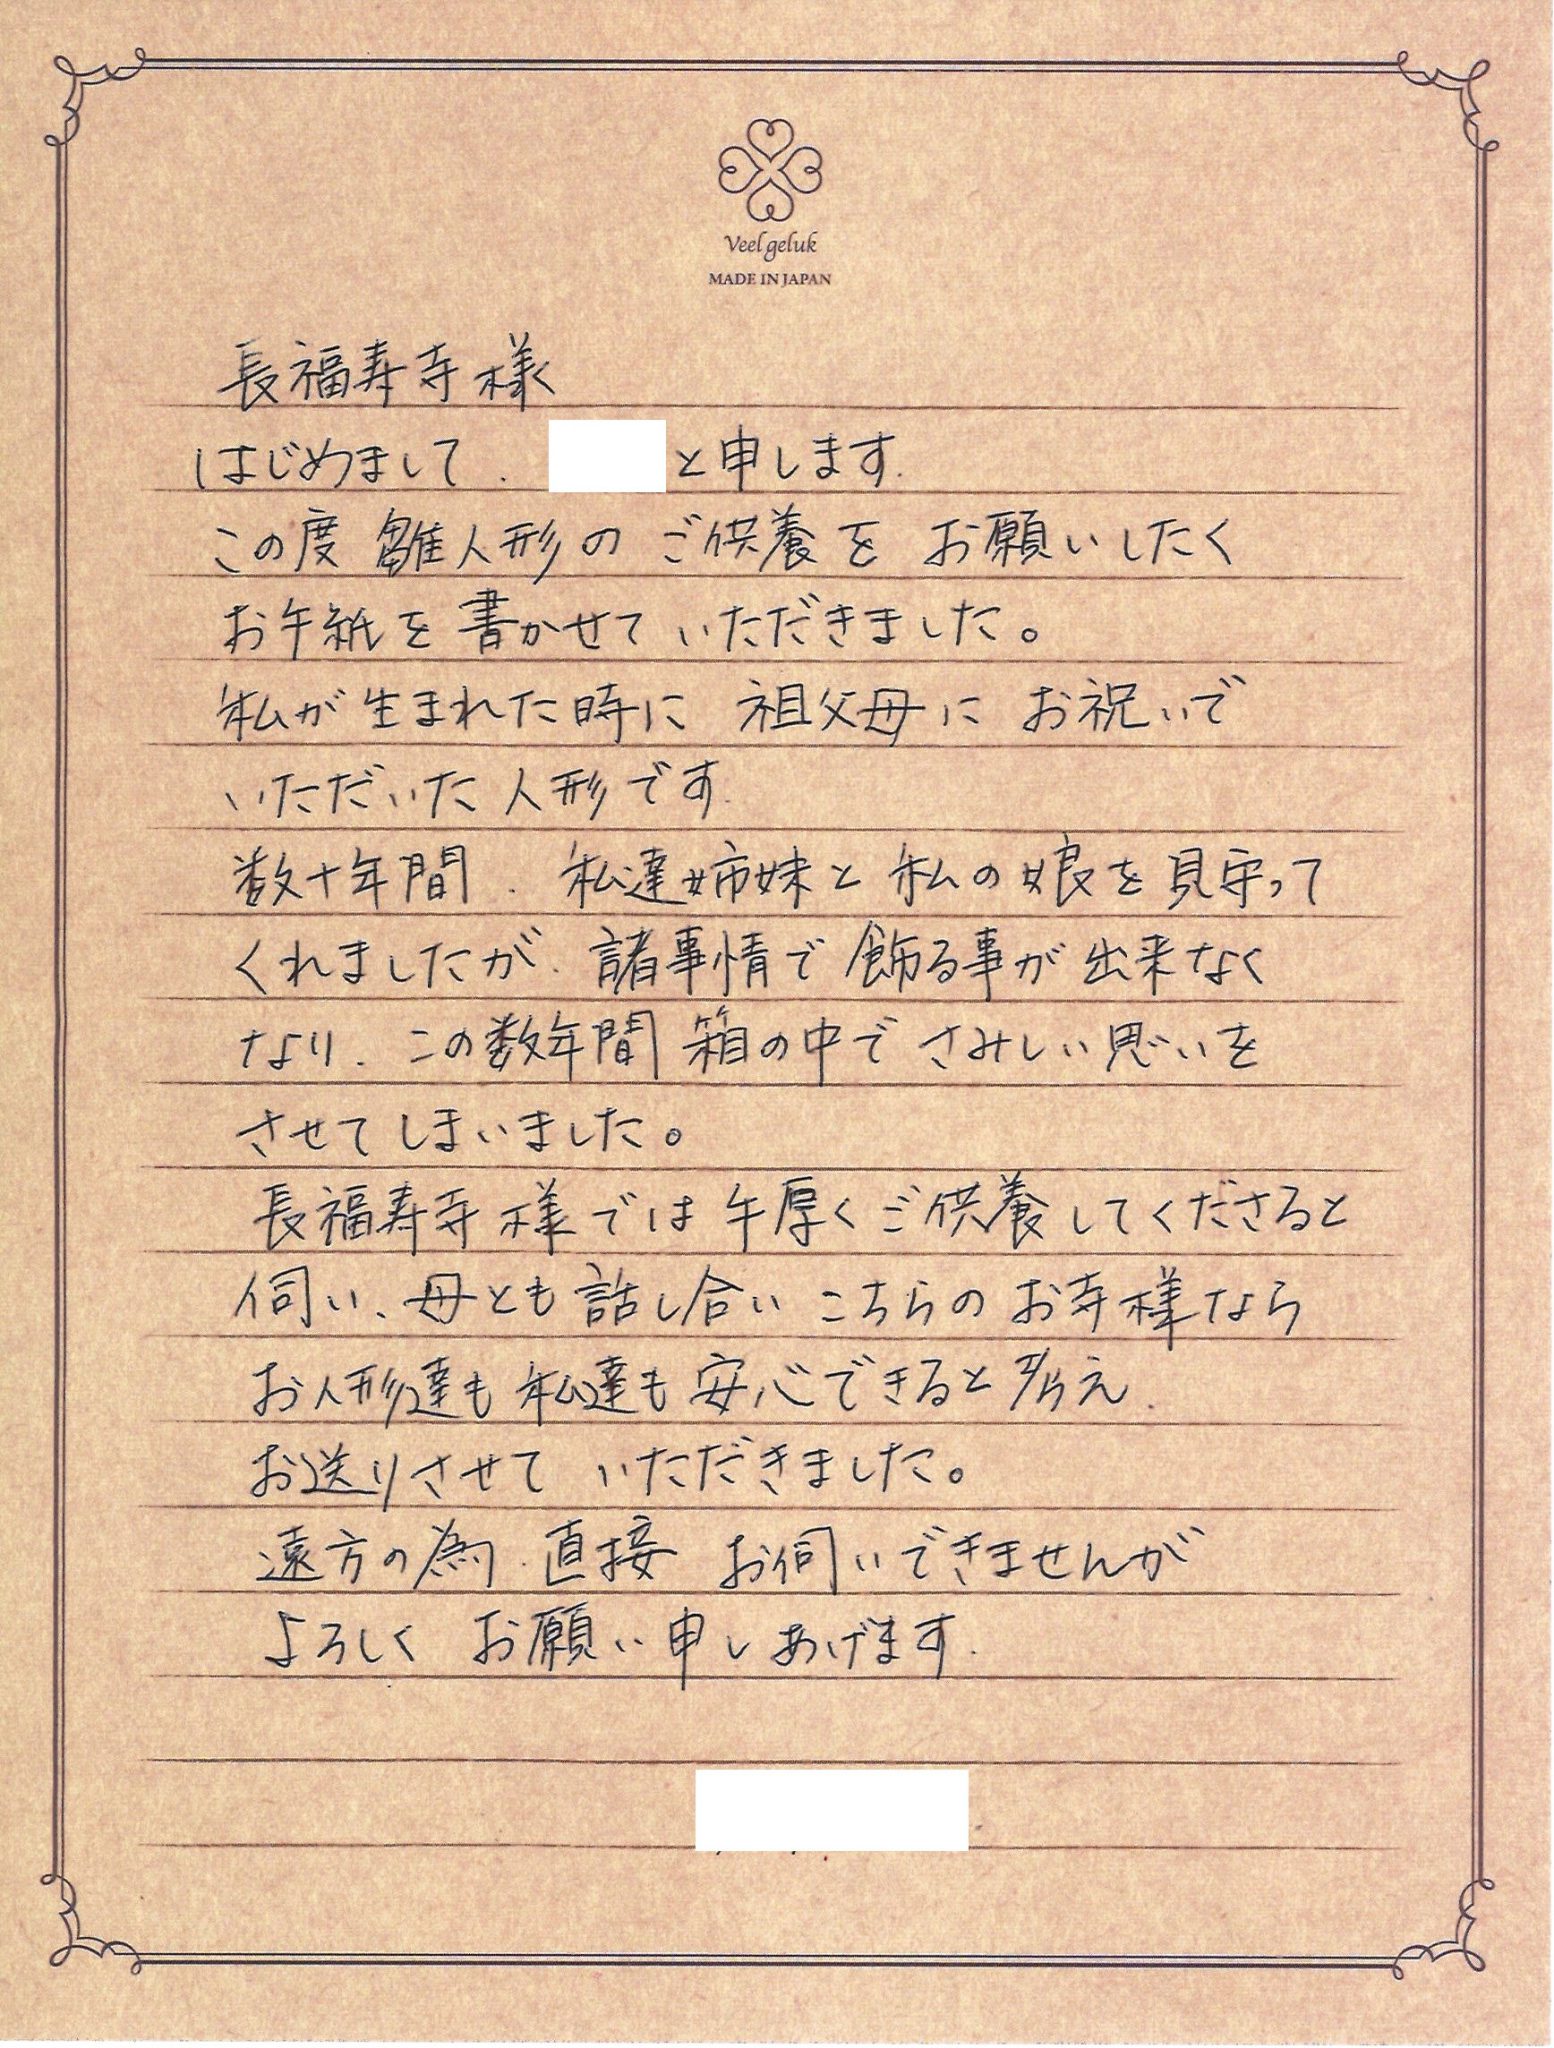 Veel geluk
MADE IN JAPAN
長福寿寺様
はじめまして. と申します.
この度 雛人形の ご供養を お願いしたく
お手紙を 書かせて いただきました。
私が 生まれた時に 祖父母に お祝いで
いただいた 人形です.
数十年間. 私達姉妹と 私の娘を 見守って
くれましたが. 諸事情で 飾る事が 出来なく
なり. この数年間 箱の中で さみしい思いを
させてしまいました。
長福寿寺様では 手厚くご供養してくださると
伺い、母とも 話し合い こちらの お寺様なら
お人形達も 私達も 安心できると 考え.
お送りさせて いただきました。
遠方の為. 直接 お伺いできませんが
よろしく お願い申しあげます.